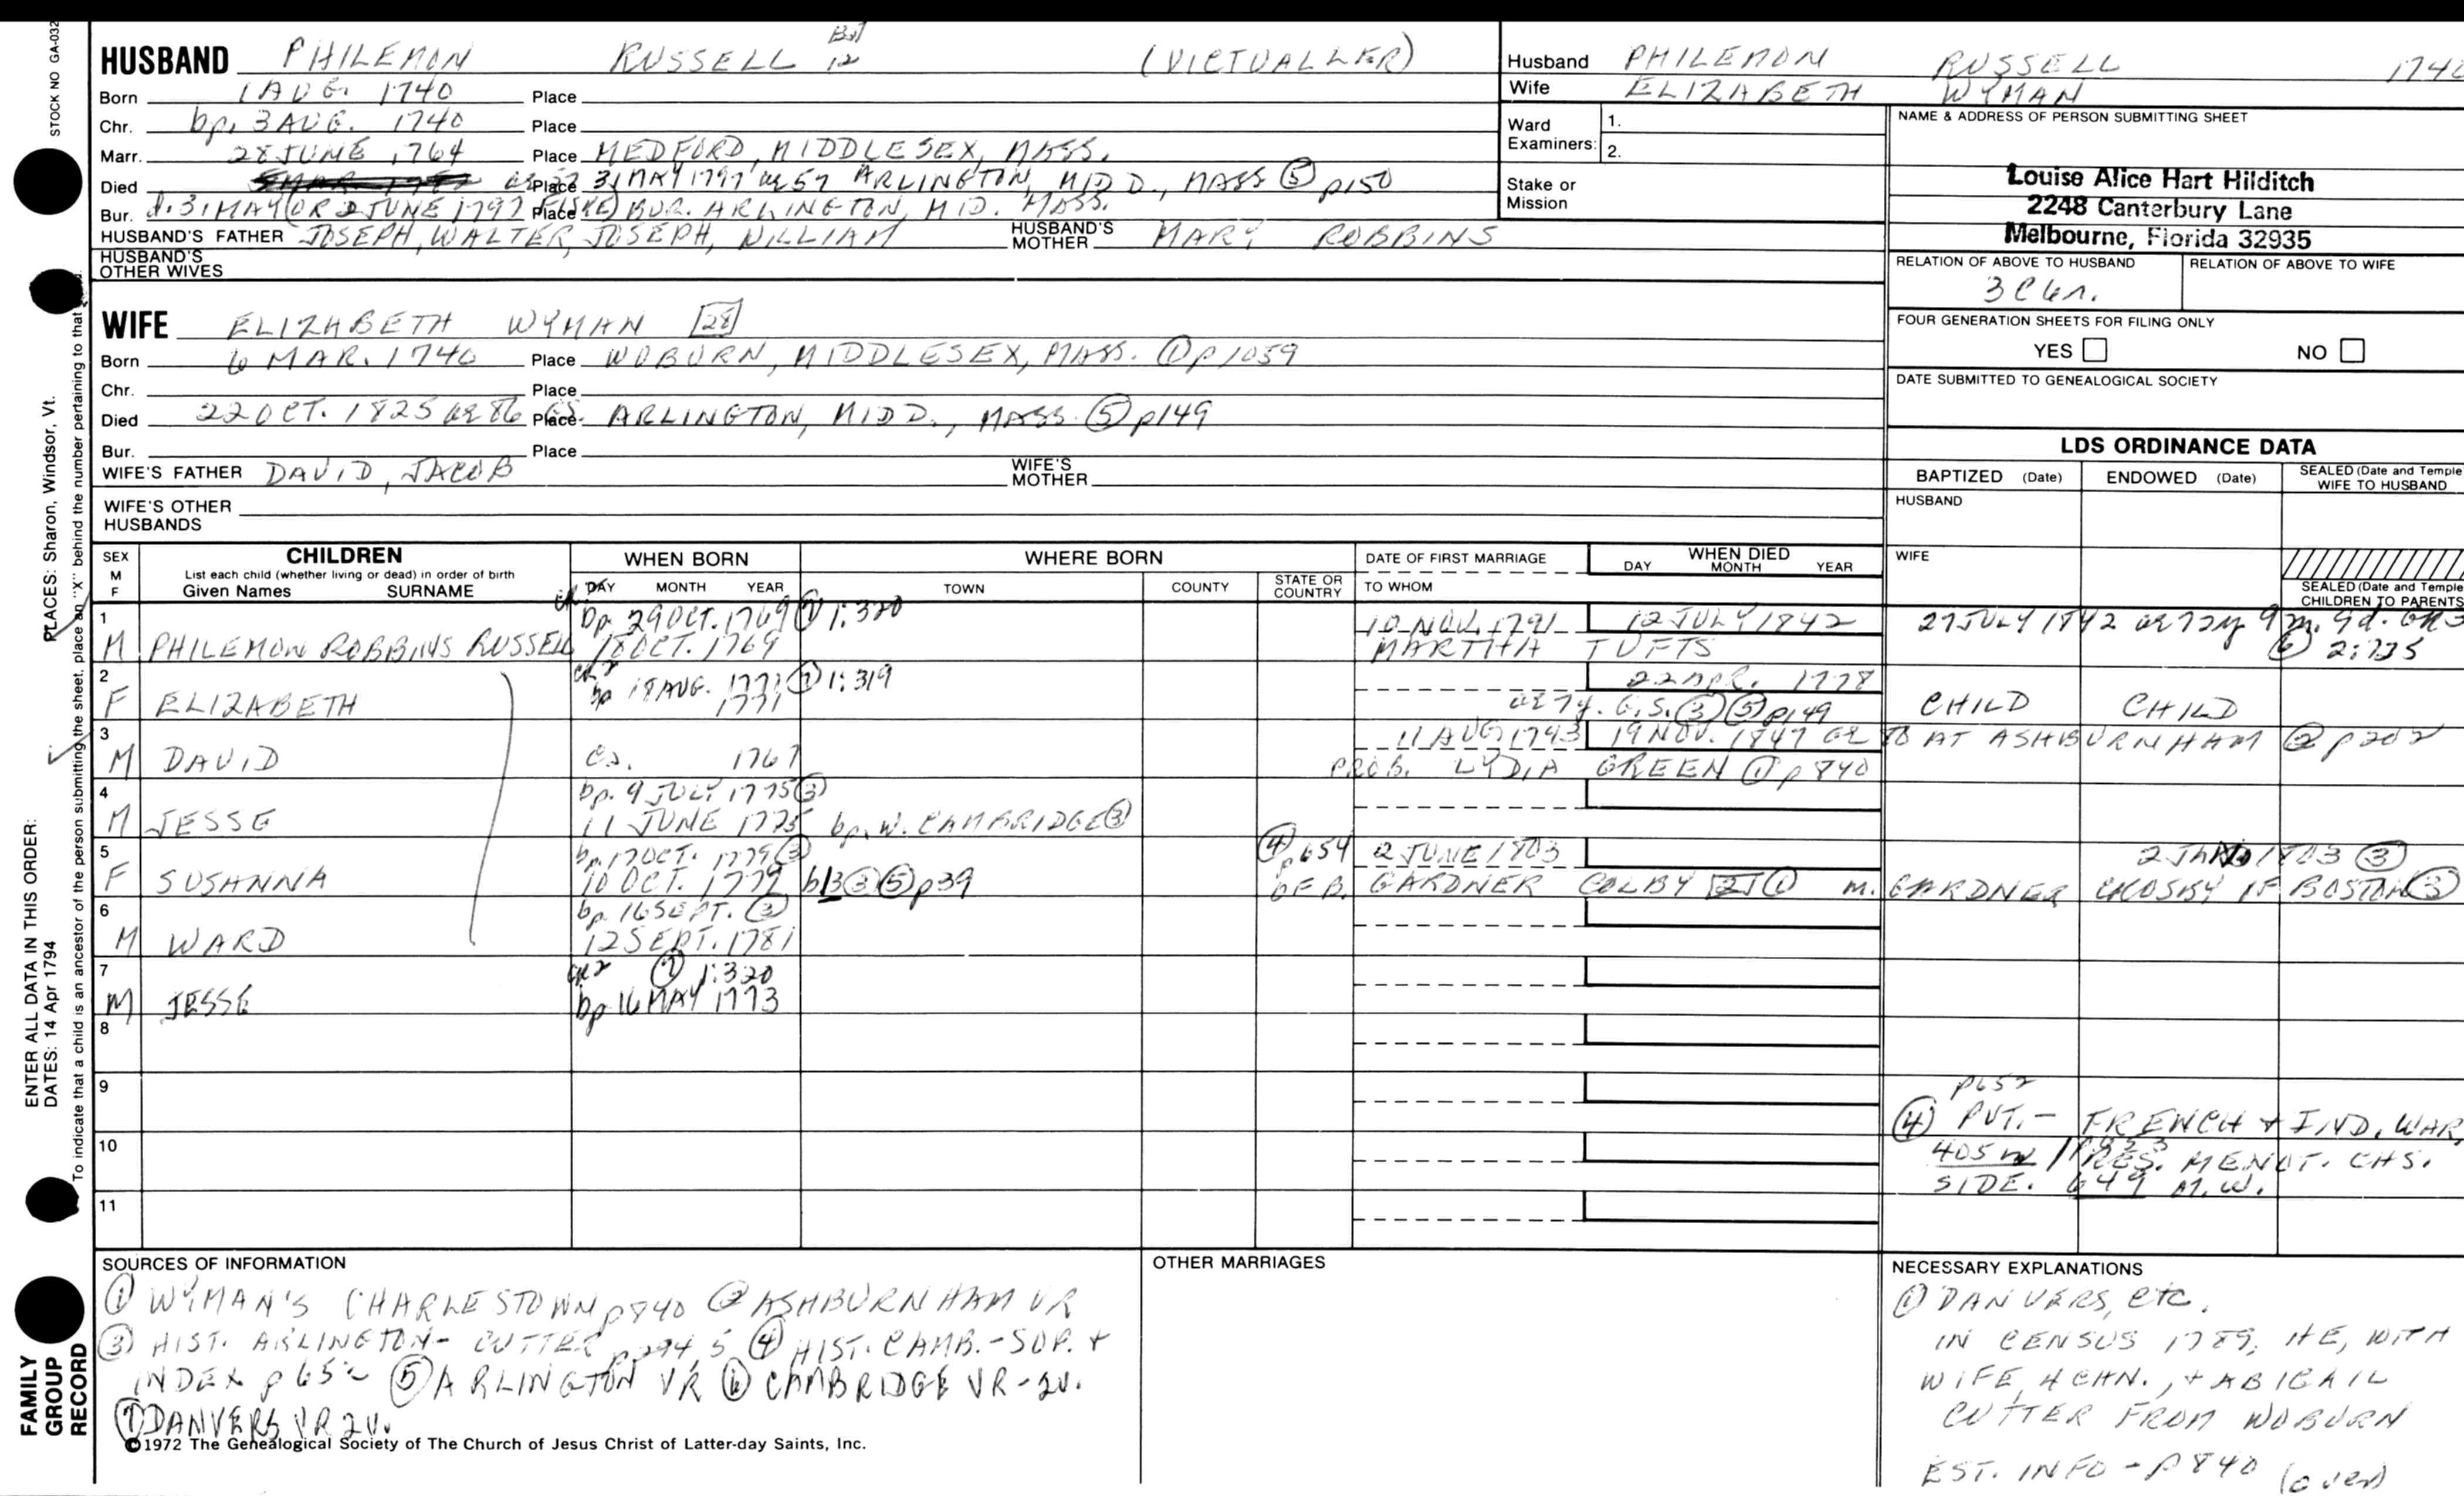 STOCK NO GA-032
HUSBAND PHILEMON RUSSELL 12 (VICTUALLER)
Born 1 AUG. 1740 Place
Chr. bp. 3 AUG. 1740 Place
Marr. 28 JUNE 1764 Place MEDFORD, MIDDLESEX, MASS.
Died Place 31 MAY 1797 ae 57 ARLINGTON, MIDD., MASS ⑤ p150
Bur. d. 31 MAY (OR 2 JUNE 1797 FISKE) Place BUR. ARLINGTON, MID. MASS.
HUSBAND'S FATHER JOSEPH, WALTER, JOSEPH, WILLIAM HUSBAND'S MOTHER MARY ROBBINS
HUSBAND'S OTHER WIVES
WIFE ELIZABETH WYMAN 28
Born 6 MAR. 1740 Place WOBURN, MIDDLESEX, MASS. ① p1059
Chr. Place
Died 22 OCT. 1825 ae 86 GS. Place ARLINGTON, MIDD., MASS. ⑤ p149
Bur. Place
WIFE'S FATHER DAVID, JACOB WIFE'S MOTHER
WIFE'S OTHER HUSBANDS
Husband PHILEMON RUSSELL 1740
Wife ELIZABETH WYMAN
Ward Examiners: 1. 2.
Stake or Mission
NAME & ADDRESS OF PERSON SUBMITTING SHEET
Louise Alice Hart Hilditch
2248 Canterbury Lane
Melbourne, Florida 32935
RELATION OF ABOVE TO HUSBAND RELATION OF ABOVE TO WIFE
FOUR GENERATION SHEETS FOR FILING ONLY
YES NO
DATE SUBMITTED TO GENEALOGICAL SOCIETY
LDS ORDINANCE DATA
BAPTIZED (Date) ENDOWED (Date) SEALED (Date and Temple) WIFE TO HUSBAND
HUSBAND
WIFE
SEALED (Date and Temple) CHILDREN TO PARENTS
SEX M F CHILDREN WHEN BORN WHERE BORN DATE OF FIRST MARRIAGE WHEN DIED
List each child (whether living or dead) in order of birth
Given Names SURNAME DAY MONTH YEAR TOWN COUNTY STATE OR COUNTRY TO WHOM DAY MONTH YEAR
1 bp. 29 OCT. 1769 ⑦ 1:320 10 NOV. 1791 12 JULY 1842 27 JULY 1842 ae 72y 9m. 9d.
M PHILEMON ROBBINS RUSSELL 18 OCT. 1769 MARTHA TUFTS ⑥ 2:735
2 CR2 bp 18 AUG. 1771 ⑦ 1:319 22 APR. 1778
F ELIZABETH 1771 ae 7y. G.S. ③ ⑤ p149 CHILD CHILD
3 11 AUG 1793 19 NOV. 1847 ae 80 AT ASHBURNHAM ② p202
M DAVID ca. 1767 PROB. LYDIA GREEN ① p840
4 bp. 9 JULY 1775 ③
M JESSE 11 JUNE 1775 bp. W. CAMBRIDGE ③
5 bp. 17 OCT. 1779 ③ ④ p654 2 JUNE 1803 2 JAN 1803 ③
F SUSANNA 10 OCT. 1779 ③ ⑤ p39 OF B. GARDNER COLBY ① m. GARDNER CROSBY OF BOSTON ③
6 bp. 16 SEPT. ③
M WARD 12 SEPT. 1781
7 CR2 ⑦ 1:320
M JESSE bp 16 MAY 1773
8
9
10
11
p652
④ PVT. - FRENCH & IND. WAR,
RES. MENOT. CHS.
SIDE. 649 M.W.
SOURCES OF INFORMATION
① WYMAN'S CHARLESTOWN p840 ② ASHBURNHAM VR
③ HIST. ARLINGTON - CUTTER p294,5 ④ HIST. CAMB. - SUP. &
INDEX p652 ⑤ ARLINGTON VR ⑥ CAMBRIDGE VR - 2V.
⑦ DANVERS VR 2V.
©1972 The Genealogical Society of The Church of Jesus Christ of Latter-day Saints, Inc.
OTHER MARRIAGES
NECESSARY EXPLANATIONS
① DANVERS, etc.
IN CENSUS 1789, HE, WITH
WIFE, 4 CHN., & ABIGAIL
CUTTER FROM WOBURN
EST. INFO - p840 (over)
ENTER ALL DATA IN THIS ORDER: PLACES: Sharon, Windsor, Vt.
DATES: 14 Apr 1794
To indicate that a child is an ancestor of the person submitting the sheet, place an "X" behind the number pertaining to that
FAMILY GROUP RECORD